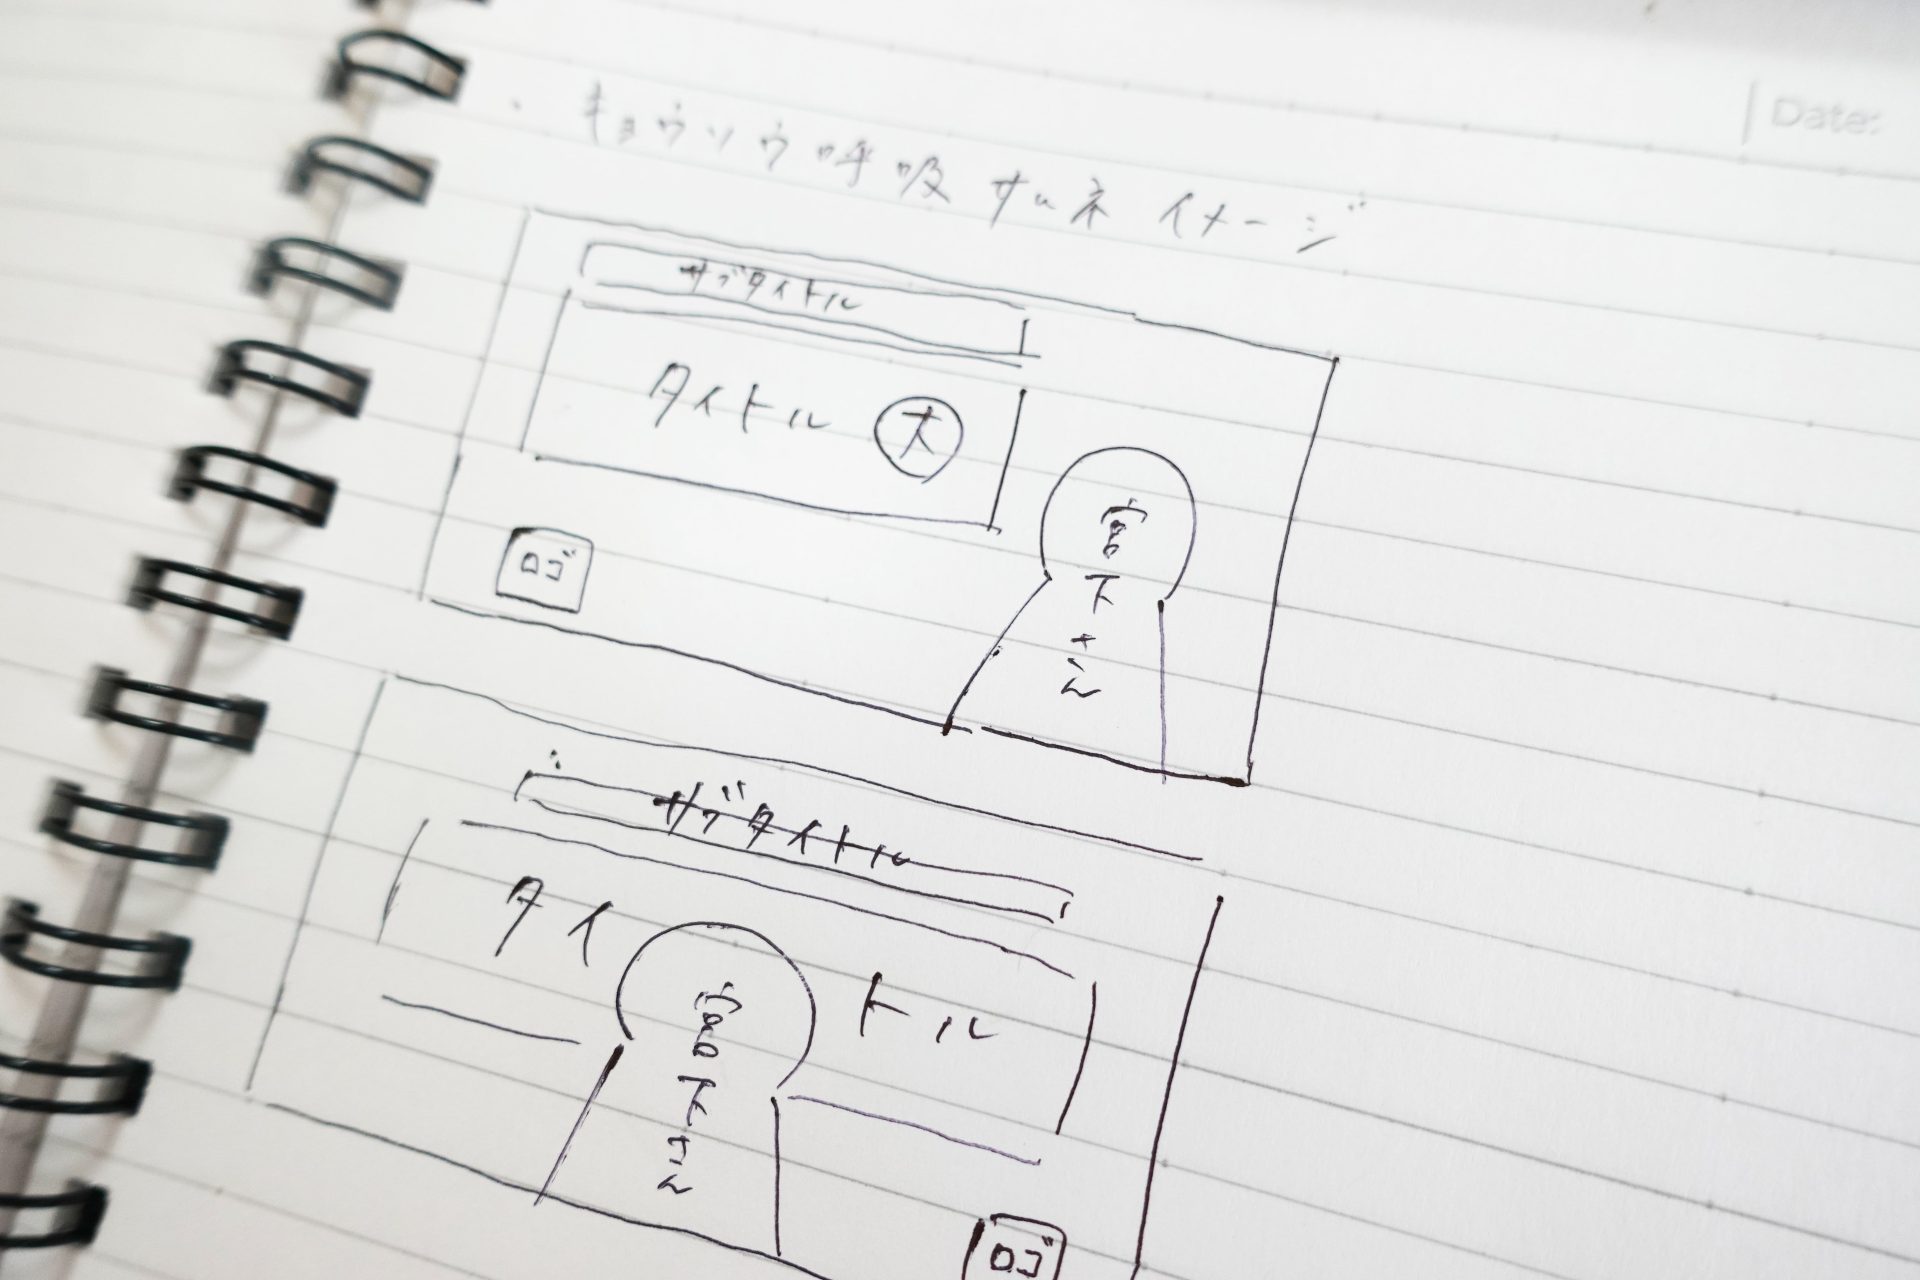 Date:
・キョウソウ呼吸 サムネ イメージ
サブタイトル
タイトル 大
宮下さん
ロゴ
サブタイトル
タイ トル
宮下さん
ロゴ